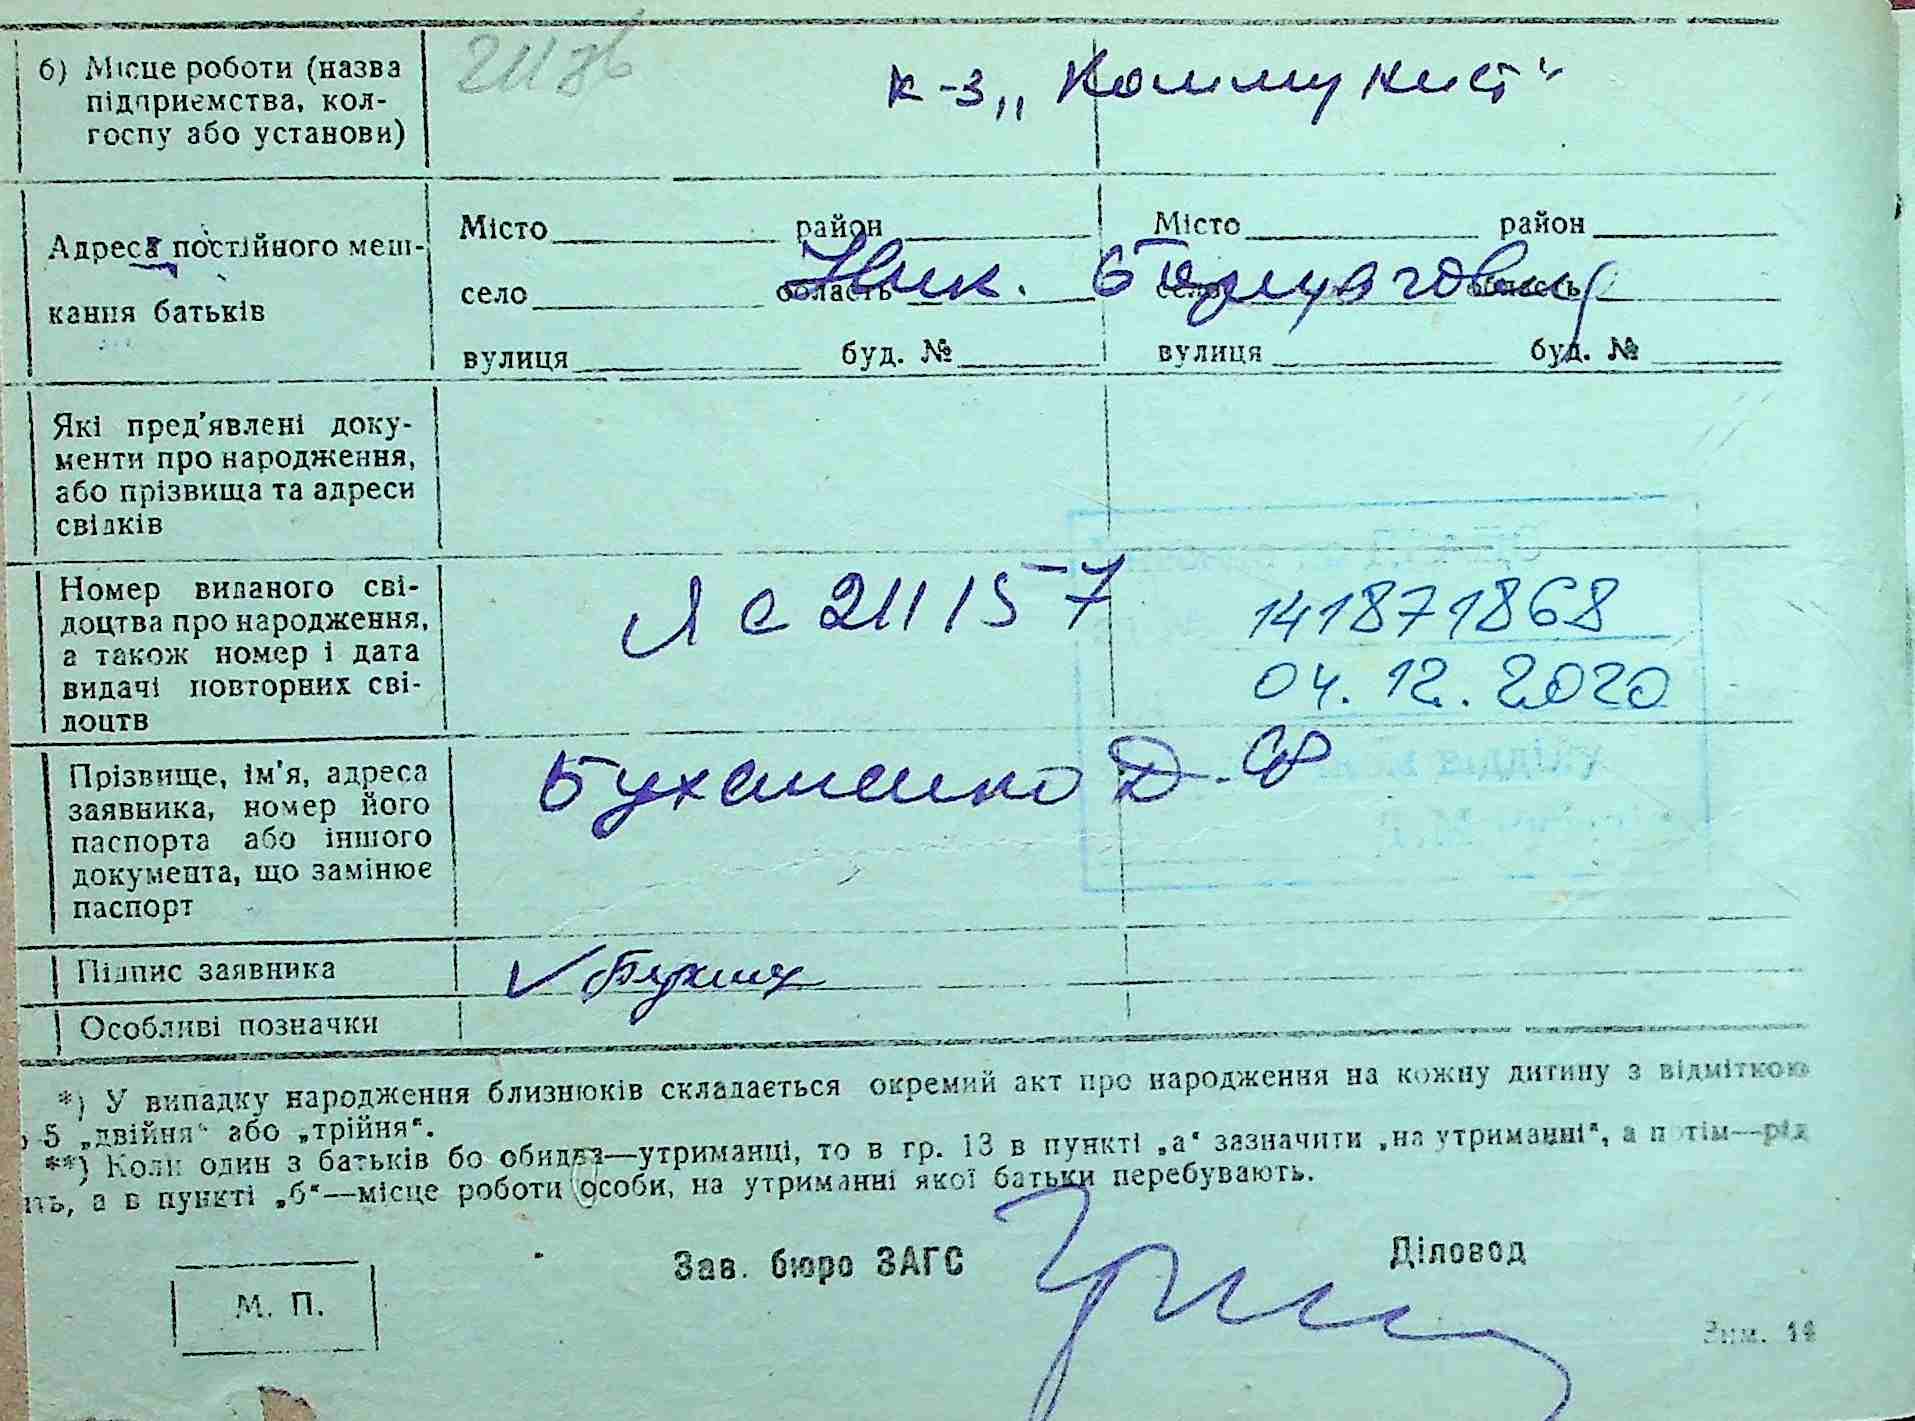 б) Місце роботи (назва
підприємства, кол-
госпу або установи)
к-з „Коммунист“
Адреса постійного меш-
кання батьків
Місто район
село область
вулиця буд. №
Місто район
село область
вулиця буд. №
Які пред'явлені доку-
менти про народження,
або прізвища та адреси
свідків
Номер виданого сві-
доцтва про народження,
а також номер і дата
видачі повторних сві-
доцтв
ЯС 211157
141871868
04.12.2020
Прізвище, ім'я, адреса
заявника, номер його
паспорта або іншого
документа, що замінює
паспорт
відділу
Підпис заявника
Особливі позначки
*) У випадку народження близнюків складається окремий акт про народження на кожну дитину з відміткою
5 „двійня“ або „трійня“.
**) Коли один з батьків бо обидва—утриманці, то в гр. 13 в пункті „а“ зазначити „на утриманні“, а потім—рід
а в пункті „б“—місце роботи особи, на утриманні якої батьки перебувають.
Зав. бюро ЗАГС
Діловод
М. П.